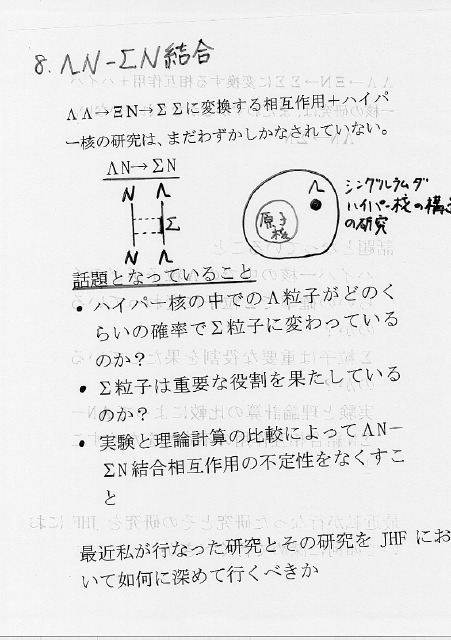 8. ΛN-ΣN結合
ΛΛ→ΞN→ΣΣに変換する相互作用+ハイパ
ー核の研究は、まだわずかしかなされていない。
ΛN→ΣN
N Λ
Σ
N Λ
Λ
原子
核
シングルラムダ
ハイパー核の構造
の研究
話題となっていること
• ハイパー核の中でのΛ粒子がどのく
らいの確率でΣ粒子に変わっている
のか?
• Σ粒子は重要な役割を果たしている
のか?
• 実験と理論計算の比較によってΛN-
ΣN結合相互作用の不定性をなくすこ
と
最近私が行なった研究とその研究を JHF にお
いて如何に深めて行くべきか